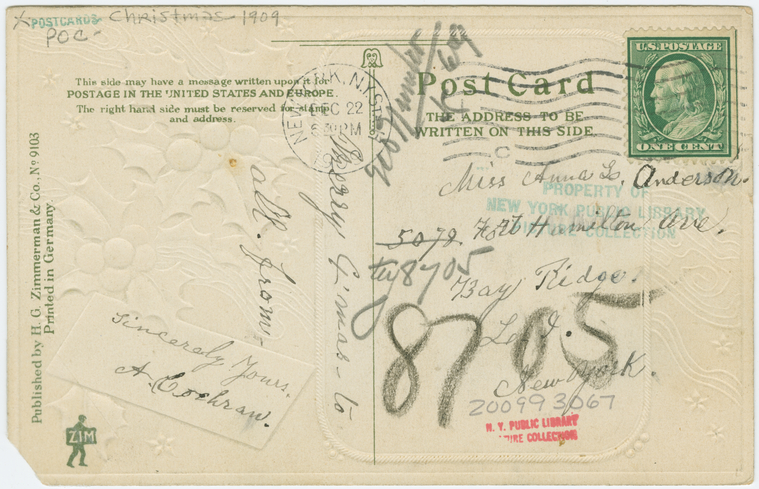 POSTCARDS Christmas 1909
POC-
This side may have a message written upon it for
POSTAGE IN THE UNITED STATES AND EUROPE.
The right hand side must be reserved for stamp
and address.
Published by H. G. Zimmerman & Co. No 9103
Printed in Germany.
NEW YORK, N.Y.
DEC 22
PM
Merry Xmas - to
all. from.
Sincerely Yours.
A. Cochran.
ZIM
Post Card
THE ADDRESS TO BE
WRITTEN ON THIS SIDE
U.S. POSTAGE
ONE CENT
Miss Anna L. Anderson.
PROPERTY OF
NEW YORK PUBLIC LIBRARY
PICTURE COLLECTION
5078 Fort Hamilton Ave.
try 8705
Bay Ridge.
L. I.
8705
New York.
200993067
N. Y. PUBLIC LIBRARY
PICTURE COLLECTION